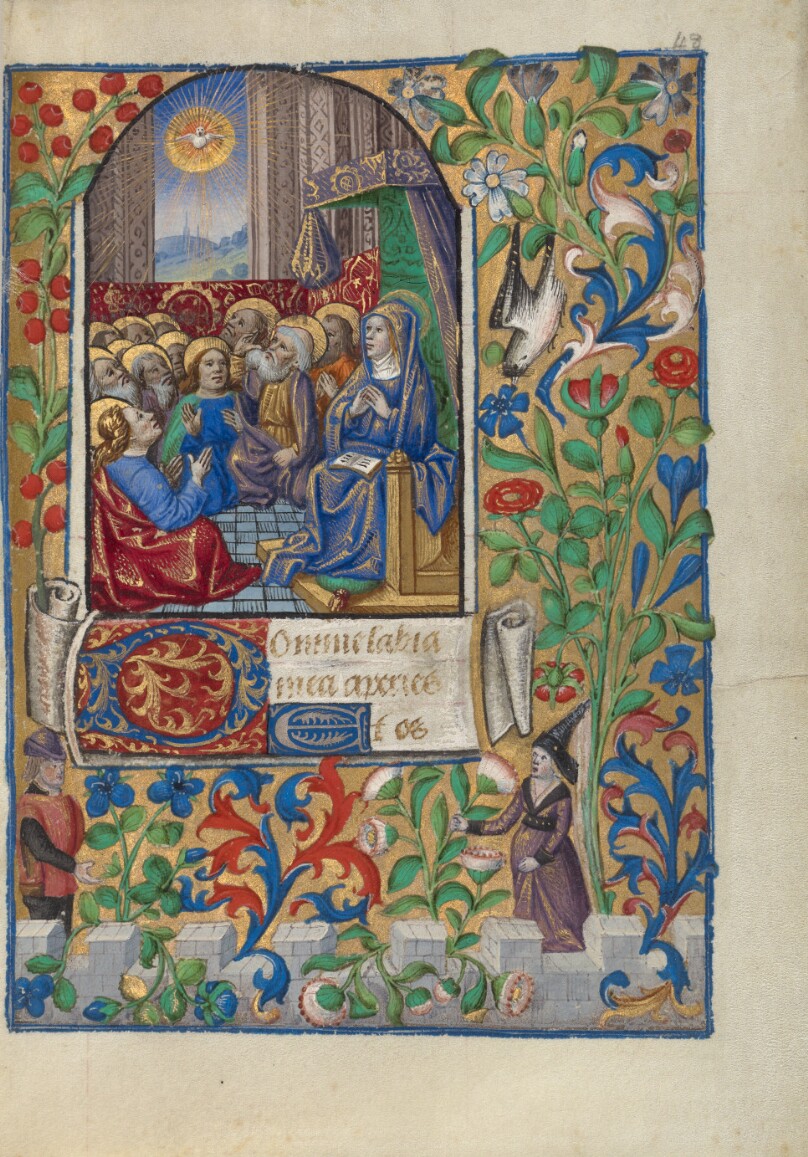 48
DOmine labia
mea aperies
Et os